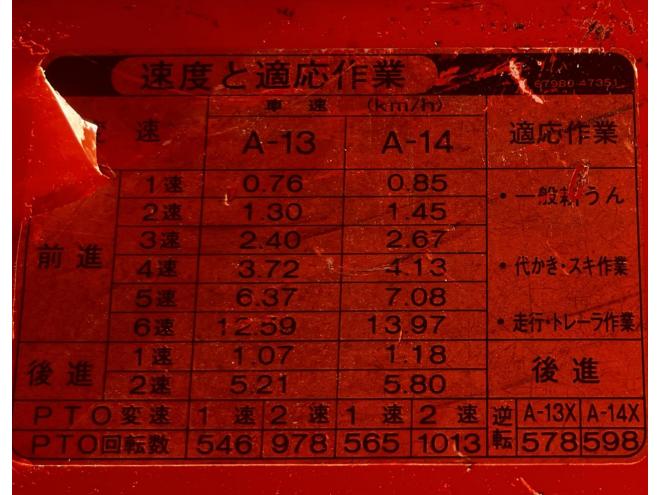 速度と適応作業
67980-47351
変速 車速 (km/h) 適応作業
A-13 A-14
前進 1速 0.76 0.85
2速 1.30 1.45 ・一般耕うん
3速 2.40 2.67
4速 3.72 4.13 ・代かき・スキ作業
5速 6.37 7.08
6速 12.59 13.97 ・走行・トレーラ作業
後進 1速 1.07 1.18 後進
2速 5.21 5.80
PTO変速 1速 2速 1速 2速 逆転 A-13X A-14X
PTO回転数 546 978 565 1013 578 598